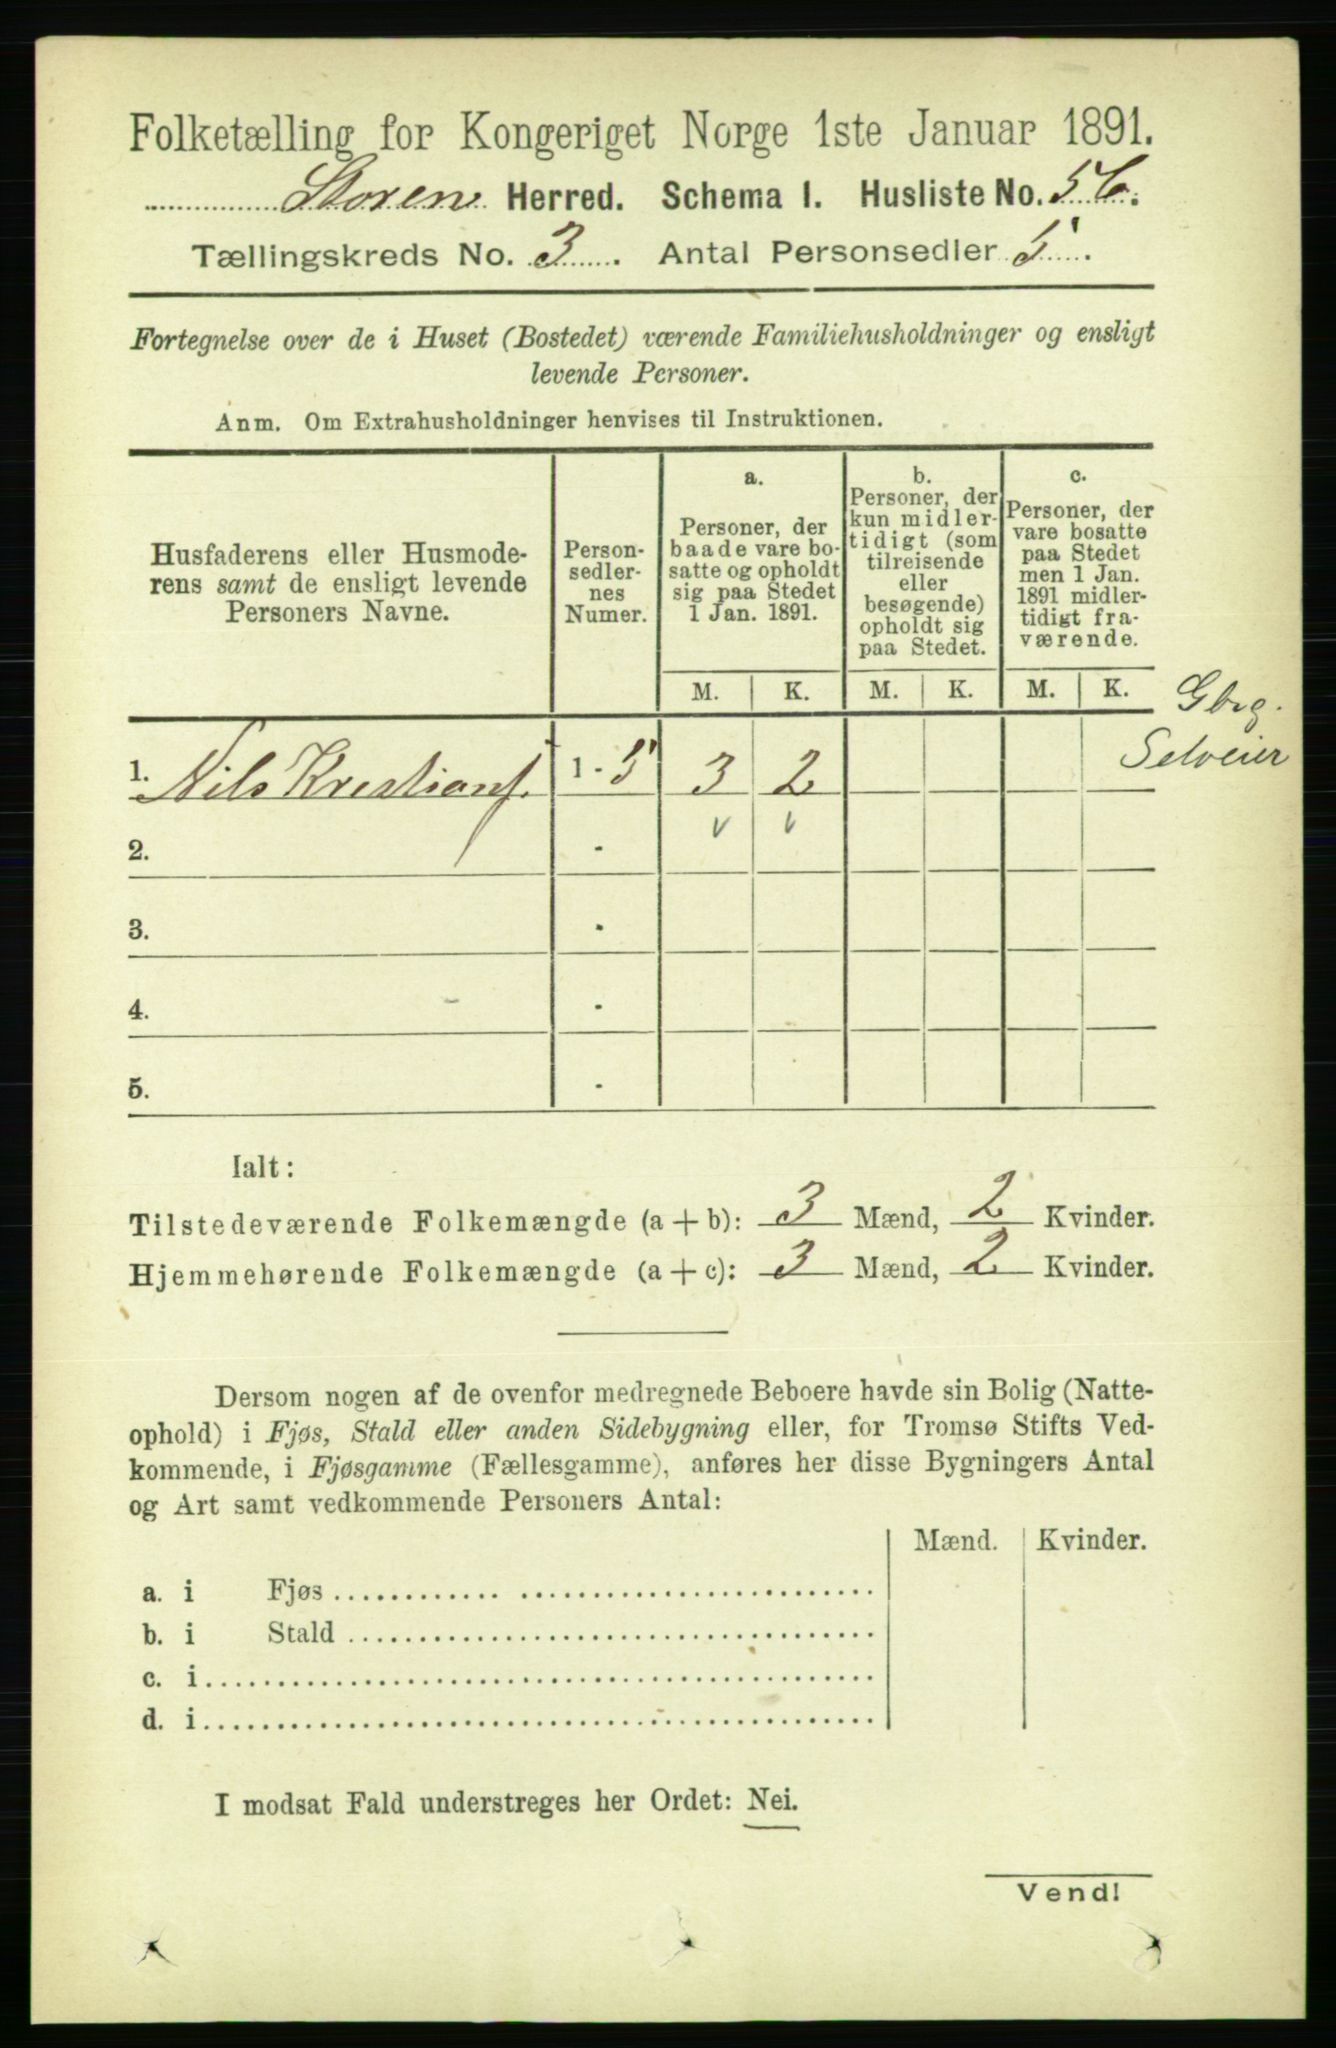 Folketælling for Kongeriget Norge 1ste Januar 1891.
Støren Herred. Schema I. Husliste No. 56.
Tællingskreds No. 3. Antal Personsedler 5.
Fortegnelse over de i Huset (Bostedet) værende Familiehusholdninger og ensligt
levende Personer.
Anm. Om Extrahusholdninger henvises til Instruktionen.
Husfaderens eller Husmode-
rens samt de ensligt levende
Personers Navne.
Person-
sedler-
nes
Numer.
a.
Personer, der
baade vare bo-
satte og opholdt
sig paa Stedet
1 Jan. 1891.
b.
Personer, der
kun midler-
tidigt (som
tilreisende
eller
besøgende)
opholdt sig
paa Stedet.
c.
Personer, der
vare bosatte
paa Stedet
men 1 Jan.
1891 midler-
tidigt fra-
værende.
M. K. M. K. M. K.
Gbrg.
Selveier
1. Nils Kristians. 1 - 5 3 2
2. -
3. -
4. -
5. -
Ialt:
Tilstedeværende Folkemængde (a + b): 3 Mænd, 2 Kvinder.
Hjemmehørende Folkemængde (a + c): 3 Mænd, 2 Kvinder.
Dersom nogen af de ovenfor medregnede Beboere havde sin Bolig (Natte-
ophold) i Fjøs, Stald eller anden Sidebygning eller, for Tromsø Stifts Ved-
kommende, i Fjøsgamme (Fællesgamme), anføres her disse Bygningers Antal
og Art samt vedkommende Personers Antal:
Mænd. Kvinder.
a. i Fjøs
b. i Stald
c. i
d. i
I modsat Fald understreges her Ordet: Nei.
Vend!